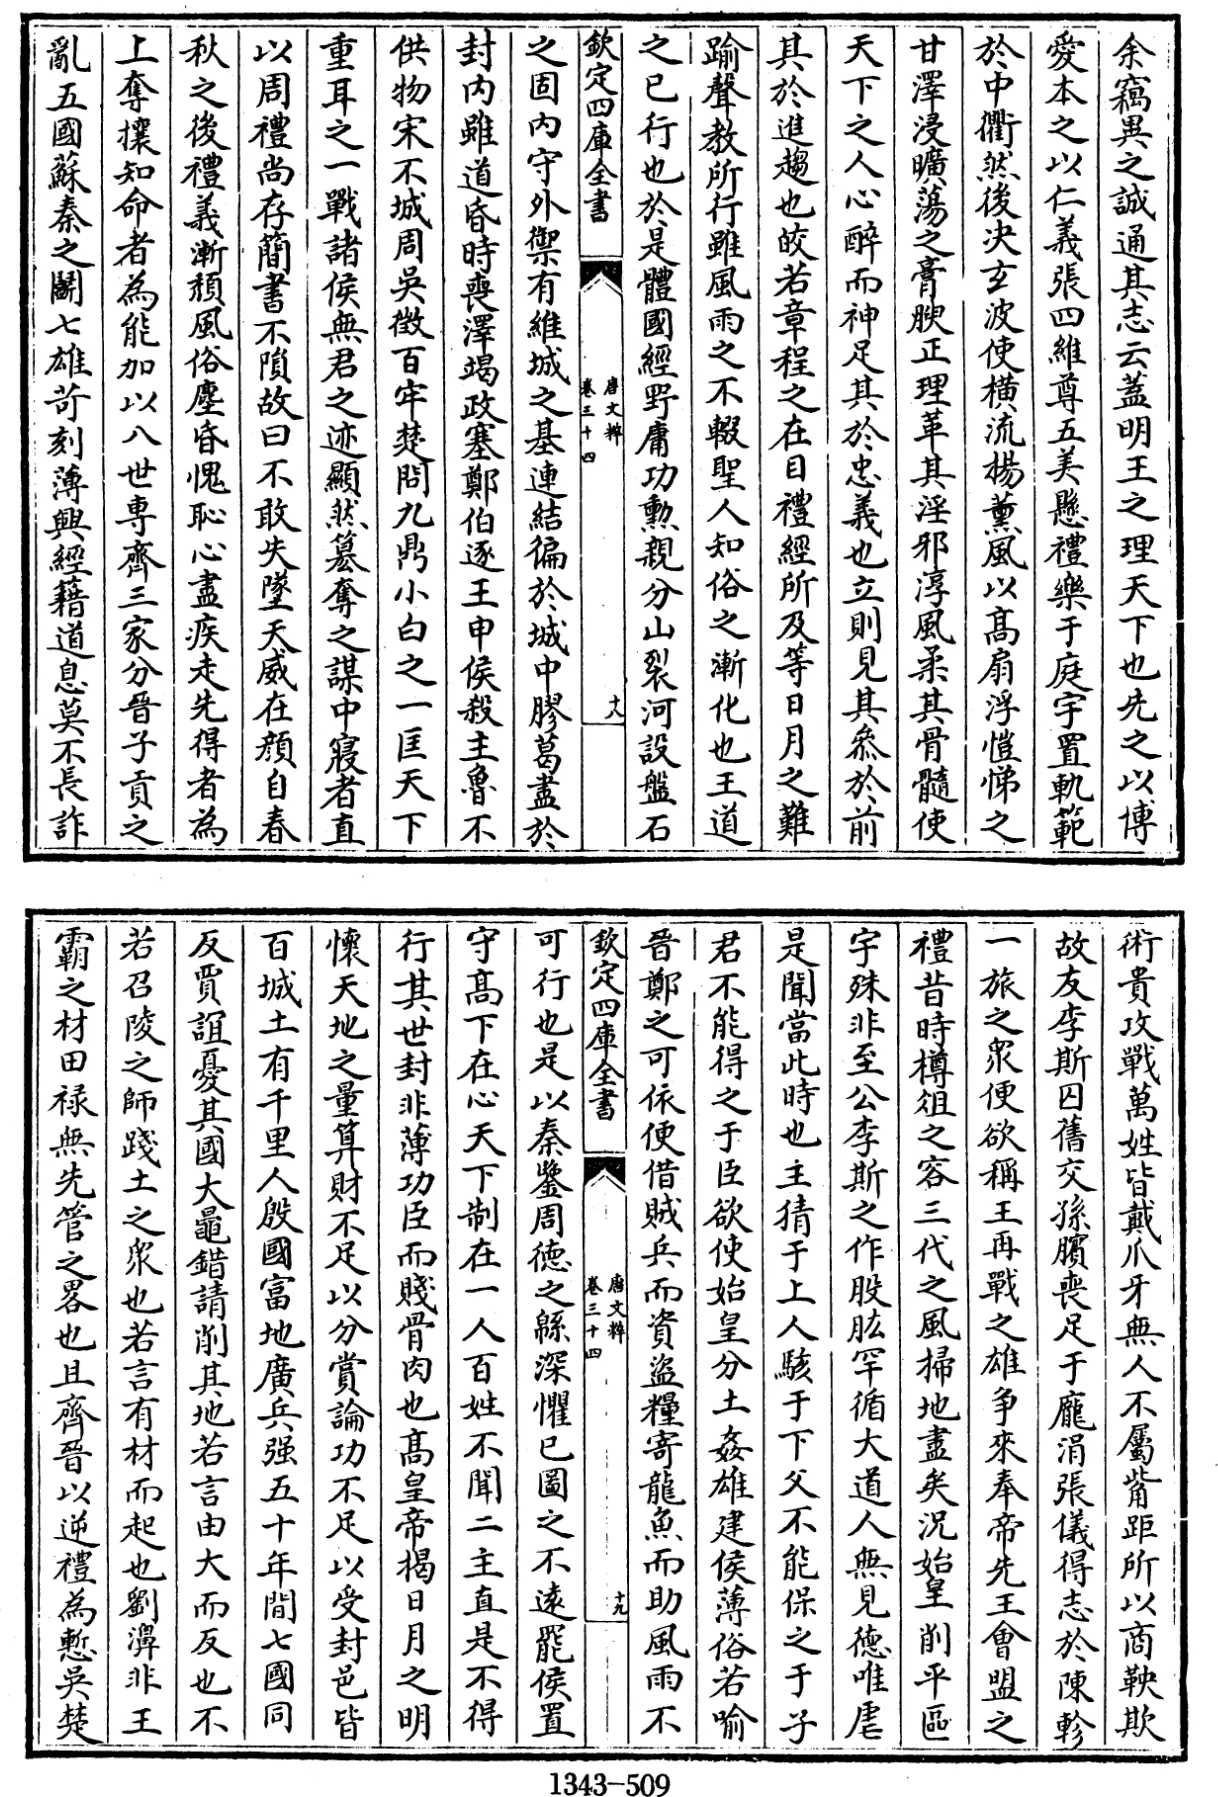 余竊異之誠通其志云蓋明王之理天下也先之以博
愛本之以仁義張四維尊五美懸禮樂于庭宇置軌範
於中衢然後决玄波使横流揚薫風以髙扇浮愷悌之
甘澤浸曠蕩之膏腴正理革其淫邪淳風柔其骨髓使
天下之人心醉而神足其於忠義也立則見其參於前
其於進趨也皎若章程之在目禮經所及等日月之難
踰聲教所行雖風雨之不輟聖人知俗之漸化也王道
之已行也於是體國經野庸功勲親分山裂河設盤石
欽定四庫全書
唐文粹
卷三十四
十八
之固内守外禦有維城之基連結徧於城中膠葛盡於
封内雖道昏時喪澤竭政塞鄭伯逐王申侯殺主魯不
供物宋不城周吳徴百牢楚問九鼎小白之一匡天下
重耳之一戰諸侯無君之迹顯然簒奪之謀中寢者直
以周禮尚存簡書不隕故曰不敢失墜天威在顔自春
秋之後禮義漸頽風俗塵昏愧恥心盡疾走先得者為
上奪攘知命者為能加以八世専齊三家分晉子貢之
亂五國蘇秦之鬭七雄苛刻薄興經籍道息莫不長詐
術貴攻戰萬姓皆戴爪牙無人不屬觜距所以商鞅欺
故友李斯囚舊交孫臏喪足于龐涓張儀得志於陳軫
一旅之衆便欲稱王再戰之雄争來奉帝先王會盟之
禮昔時樽俎之容三代之風掃地盡矣況始皇削平區
宇殊非至公李斯之作股肱罕循大道人無見德唯虐
是聞當此時也主猜于上人駭于下父不能保之于子
君不能得之于臣欲使始皇分土姦雄建侯薄俗若喻
晉鄭之可依便借賊兵而資盜糧寄龍魚而助風雨不
欽定四庫全書
唐文粹
卷三十四
十九
可行也是以秦鑒周德之緜深懼已圖之不逺罷侯置
守髙下在心天下制在一人百姓不聞二主直是不得
行其世封非薄功臣而賤骨肉也髙皇帝揭日月之明
懷天地之量算財不足以分賞論功不足以受封邑皆
百城土有千里人殷國富地廣兵强五十年間七國同
反賈誼憂其國大鼂錯請削其地若言由大而反也不
若召陵之師踐土之衆也若言有材而起也劉濞非王
霸之材田禄無先管之畧也且齊晉以逆禮為慙吳楚
1343-509